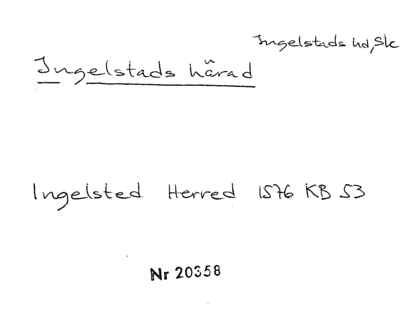 Ingelstads hd, Sk
Ingelstads härad
Ingelsted Herred 1576 KB 53
Nr 20358